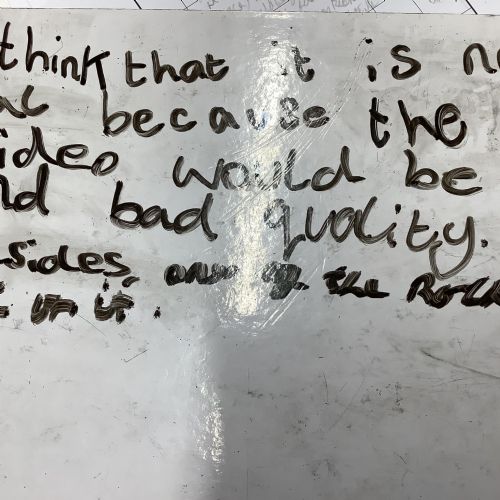 think that it is n
al because the
ideo would be
nd bad quality.
sides, the Rock